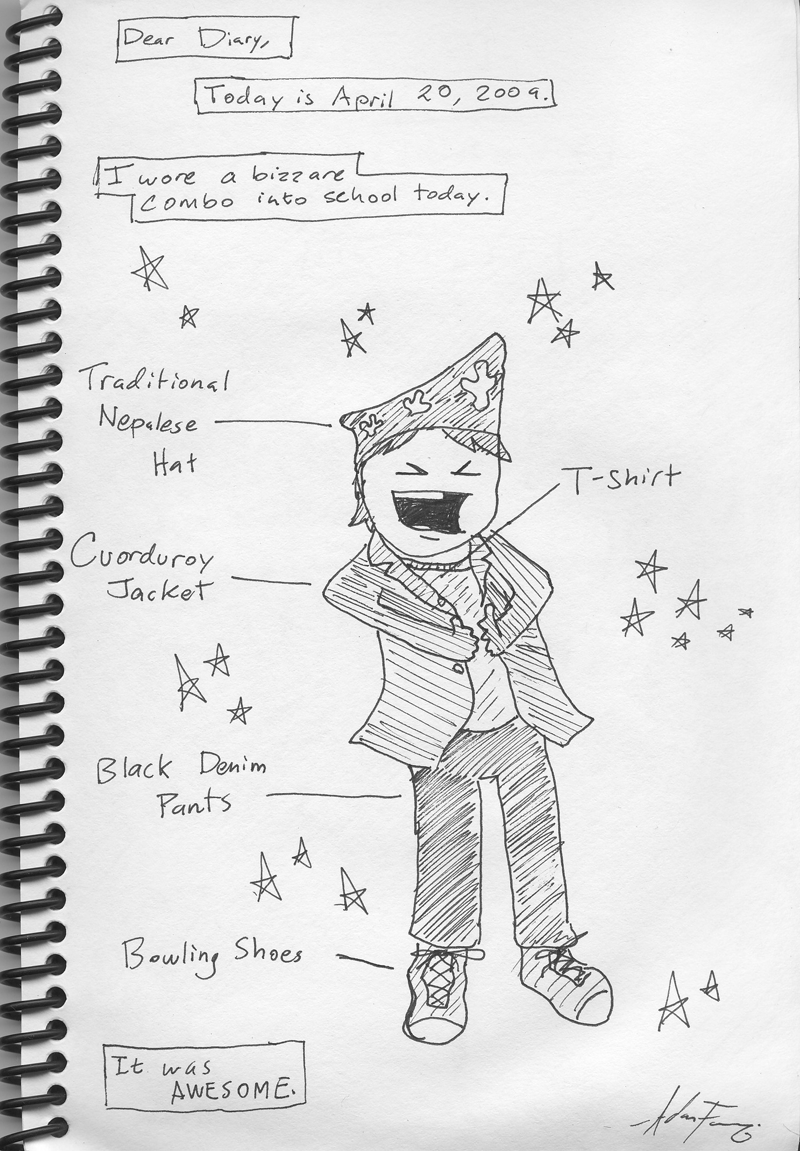 Dear Diary,
Today is April 20, 2009.
I wore a bizzare
combo into school today.
Traditional
Nepalese
Hat
T-shirt
Cuorduroy
Jacket
Black Denim
Pants
Bowling Shoes
It was
AWESOME.